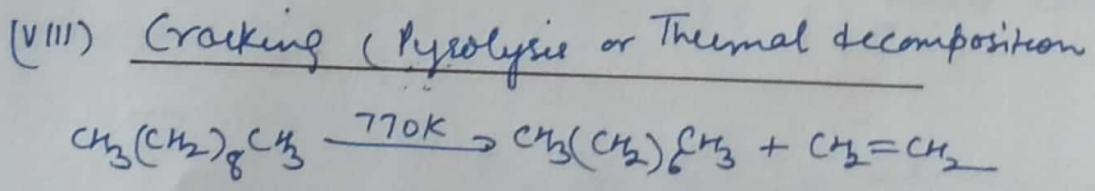 (VIII) Cracking (Pyrolysis or Thermal decomposition
CH₃(CH₂)₈CH₃ —770K→ CH₃(CH₂)₆CH₃ + CH₂=CH₂